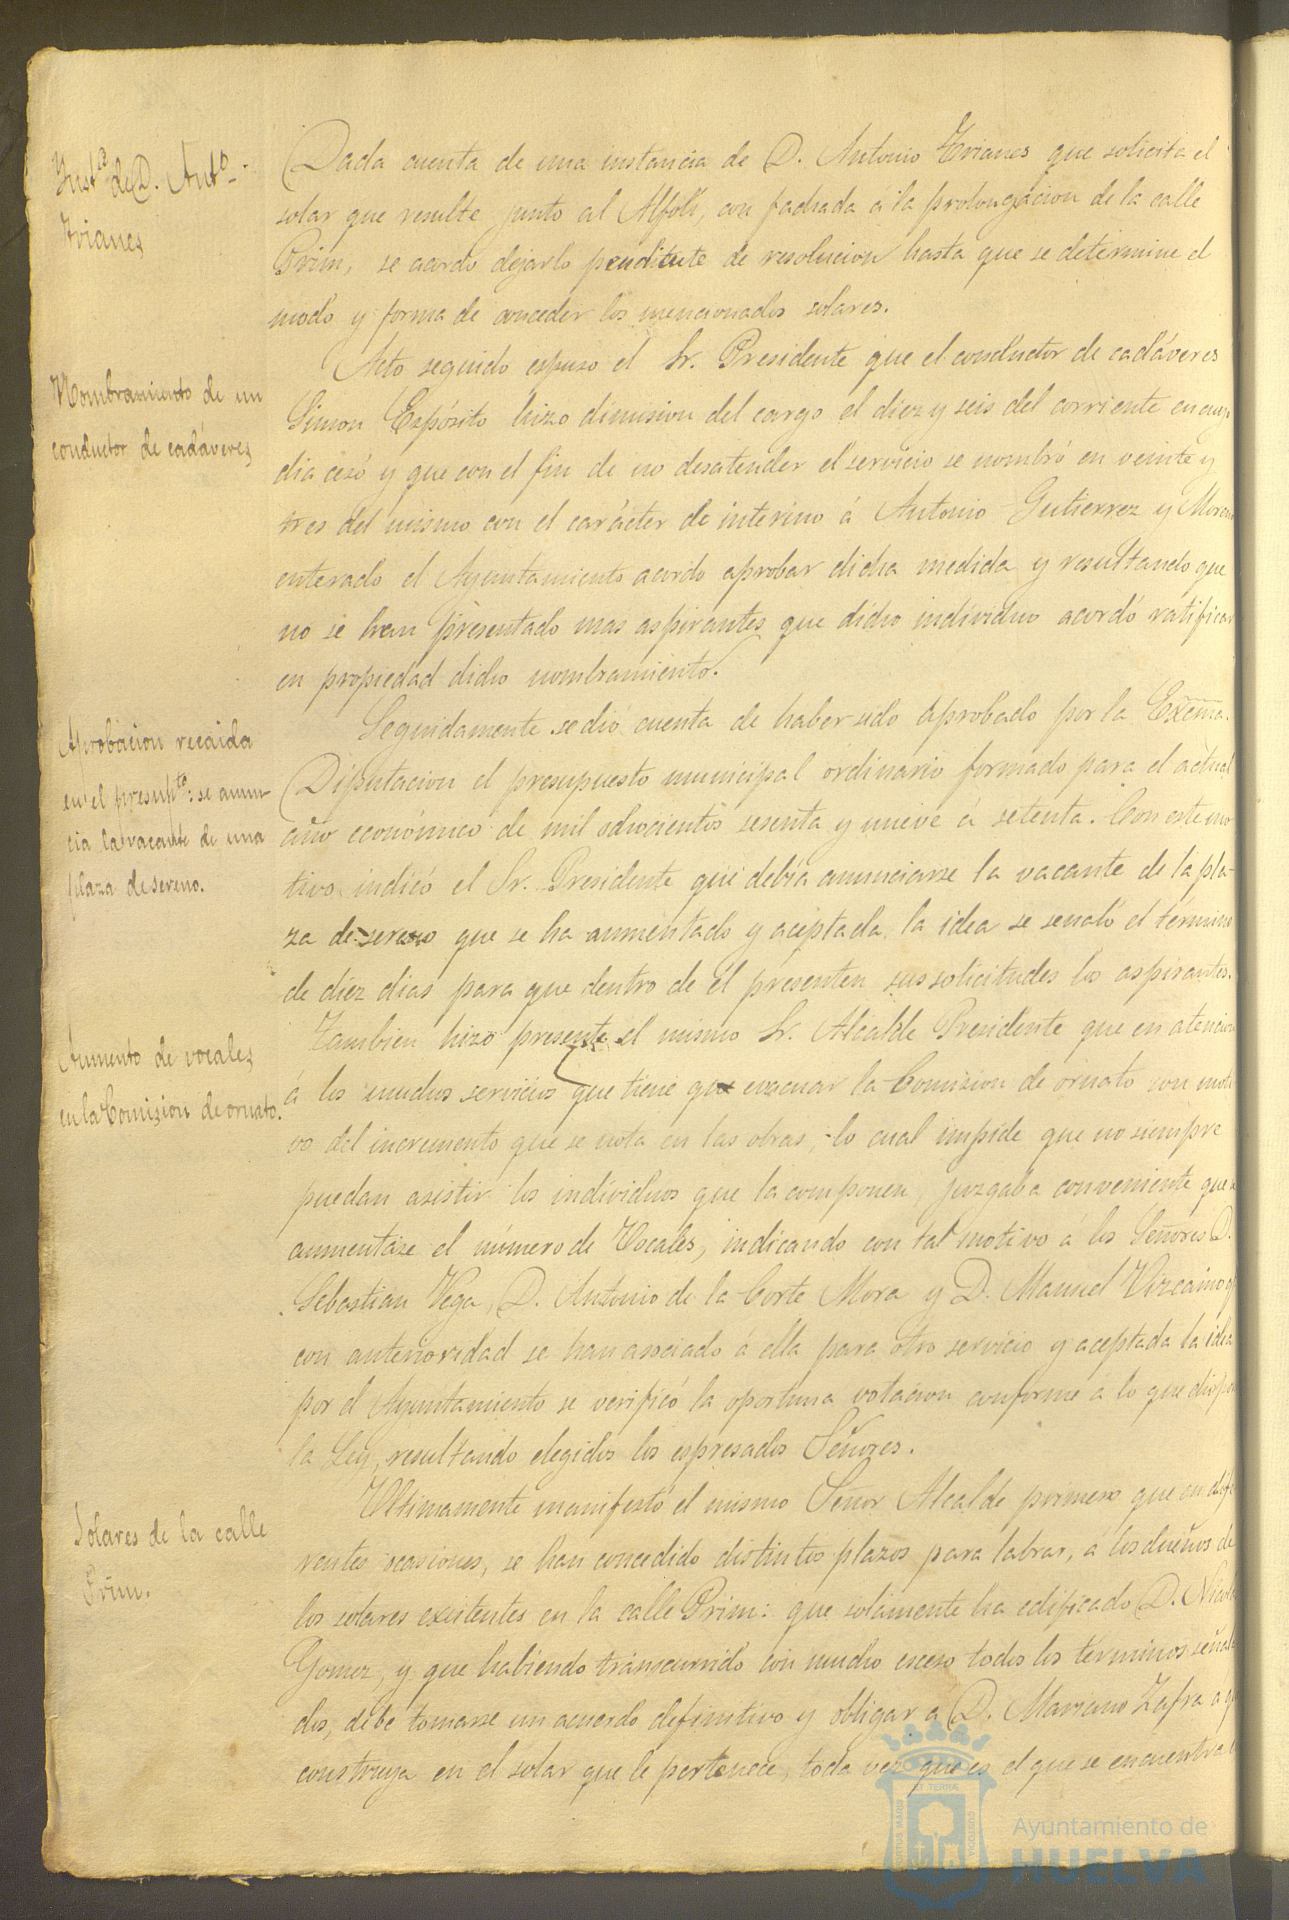 Inst.ª de D. Ant.º
Trianes
Dada cuenta de una instancia de D. Antonio Trianes que solicita el
solar que resulte junto al Alfolí, con fachada á la prolongacion de la calle
Prim, se acordó dejarlo pendiente de resolucion hasta que se determine el
modo y forma de conceder los mencionados solares.
Nombramiento de un
conductor de cadáveres
Acto seguido espuso el Sr. Presidente que el conductor de cadáveres
Simon Espósito hizo dimision del cargo el diez y seis del corriente en cuyo
dia cesó y que con el fin de no desatender el servicio se nombró en veinte y
tres del mismo con el carácter de interino á Antonio Gutierrez y Moreno
enterado el Ayuntamiento acordó aprobar dicha medida y resultando que
no se han presentado mas aspirantes que dicho individuo acordó ratificar
en propiedad dicho nombramiento.
Aprobacion recaida
en el presup.to: se anun-
cia la vacante de una
plaza de sereno.
Seguidamente se dió cuenta de haber sido aprobado por la Excma.
Diputacion el presupuesto municipal ordinario formado para el actual
año económico de mil ochocientos sesenta y nueve á setenta. Con este mo
tivo indicó el Sr. Presidente que debía anunciarse la vacante de la pla-
za de sereno que se ha aumentado y aceptada la idea se señaló el término
de diez dias para que dentro de él presenten sus solicitudes los aspirantes.
Aumento de vocales
en la Comision de ornato.
Tambien hizo presente el mismo Sr. Alcalde Presidente que en atencion
á los muchos servicios que tiene que evacuar la Comision de ornato con moti
vo del incremento que se nota en las obras, lo cual impide que no siempre
puedan asistir los individuos que la componen, juzgaba conveniente que se
aumentase el número de Vocales, indicando con tal motivo á los Señores D.
Sebastian Vega, D. Antonio de la Corte Mora y D. Manuel Vizcaino q
con anterioridad se han asociado á ella para otro servicio y aceptada la idea
por el Ayuntamiento se verificó la oportuna votacion conforme á lo que dispo
la Ley, resultando elegidos los espresados Señores.
Solares de la calle
Prim.
Ultimamente manifestó el mismo Señor Alcalde primero que en dife
rentes ocasiones, se han concedido distintos plazos para labrar, á los dueños de
los solares existentes en la calle Prim: que solamente ha edificado D. Nicolas
Gomez, y que habiendo transcurrido con mucho esceso todos los términos señala
dos, debe tomarse un acuerdo definitivo y obligar á D. Mariano Zafra a q
construya en el solar que le pertenece, toda vez que es el que se encuentra
Ayuntamiento de
HUELVA